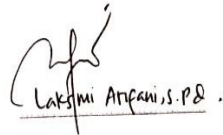 Laksmi Arifani, S.Pd.